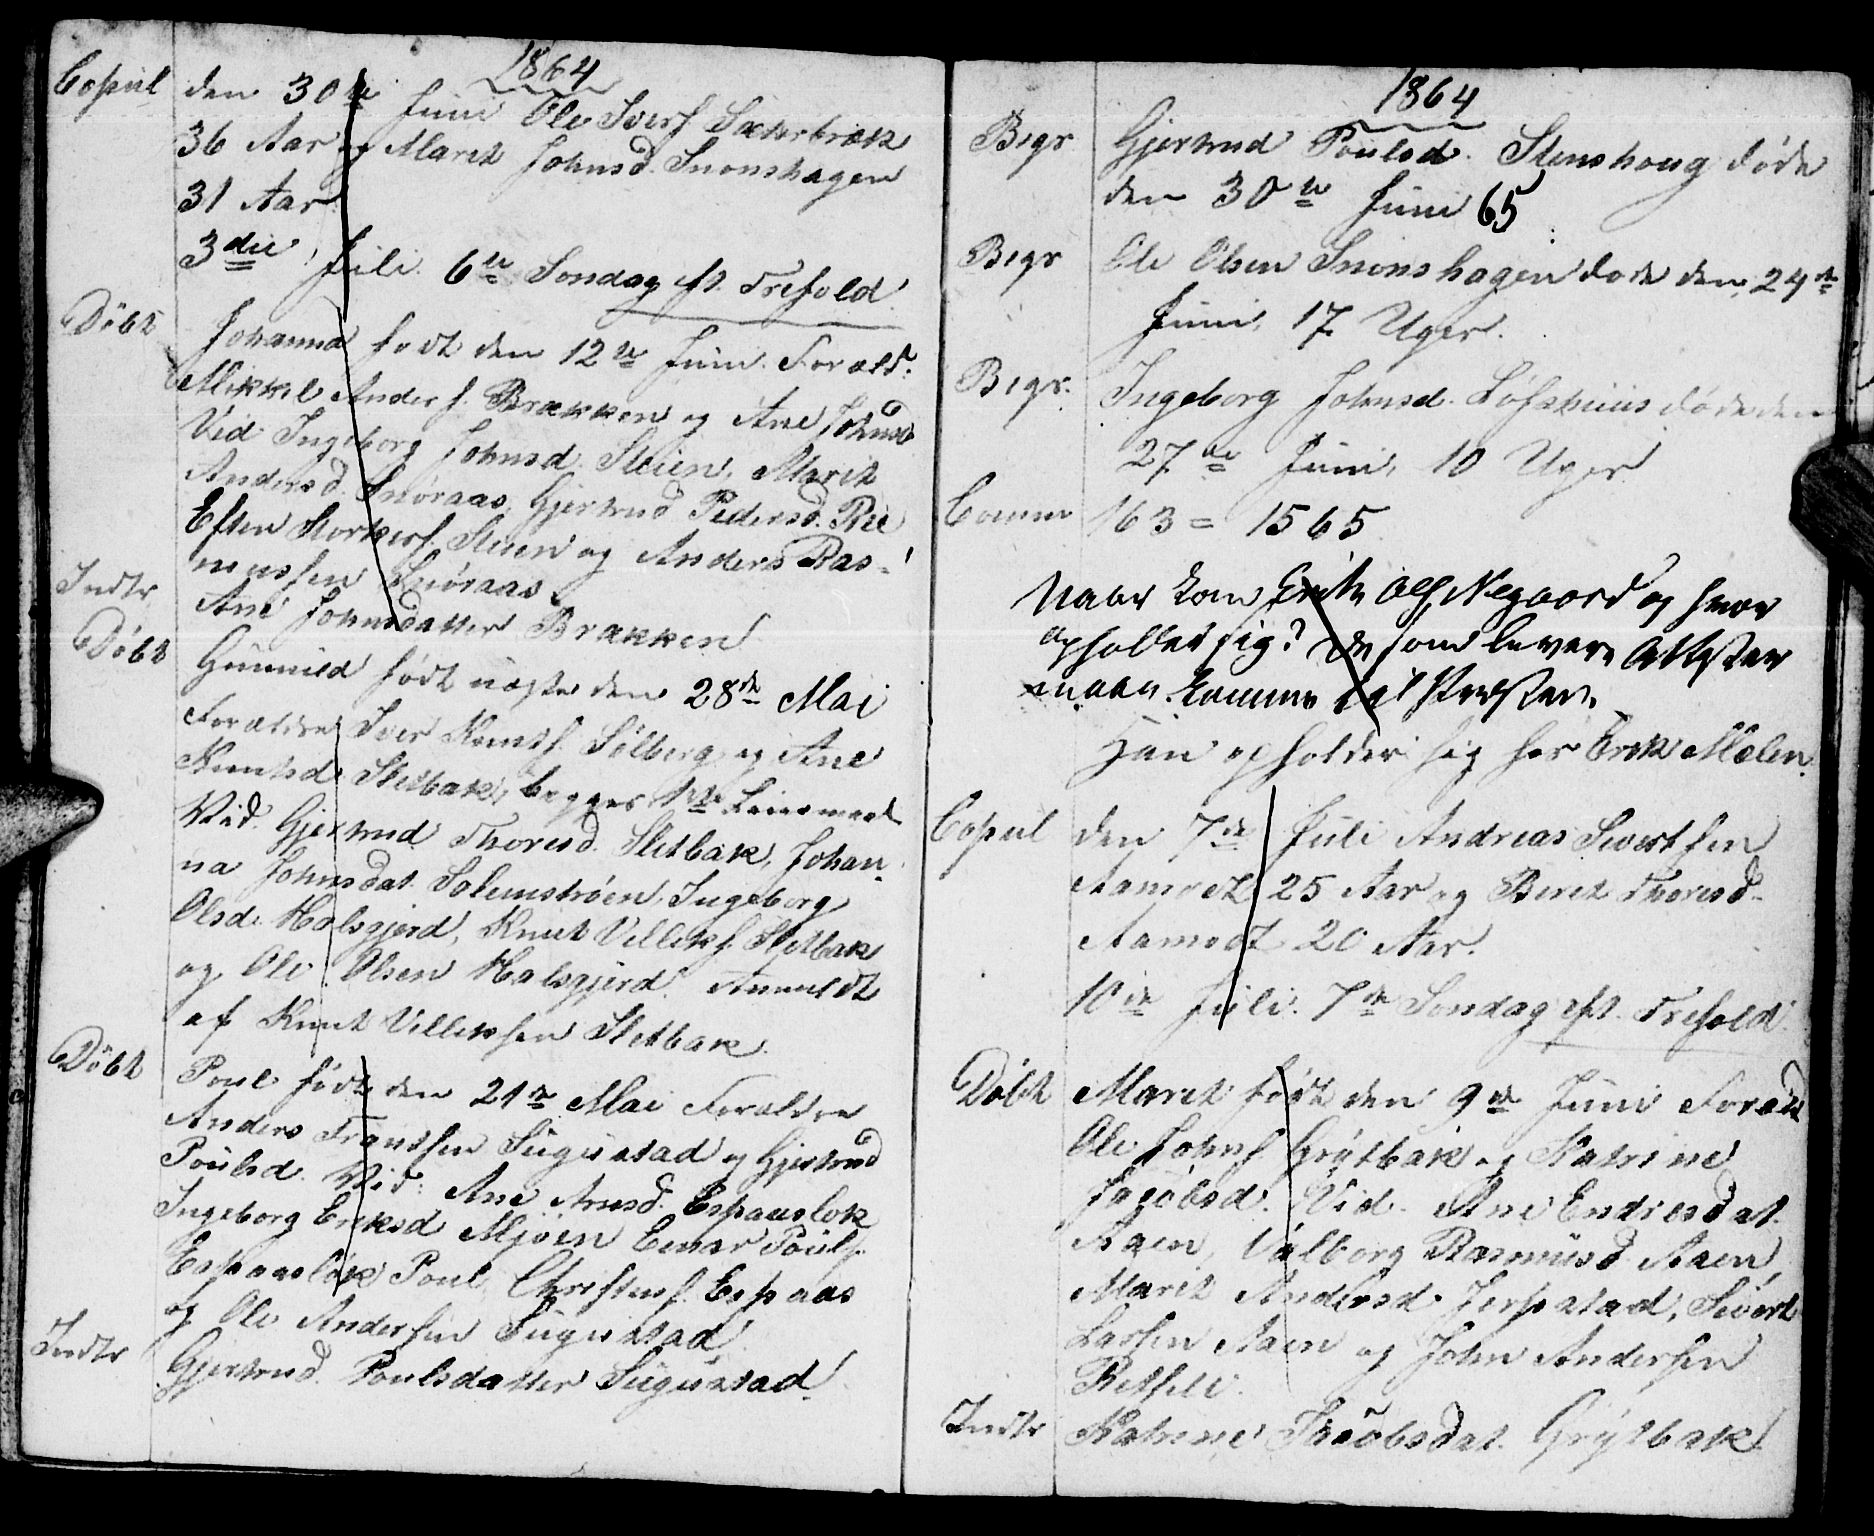 1864
Copul den 30te Juni Ole Iverf. Sæterbræk
36 Aar og Marit Johnsd. Snonshagen
31 Aar
3die Juli 6te Sondag eft. Trefold.
Döbt Johanna født den 12te Juni. Foræld:
Mikkel Andersf. Brækken og Ane Johnsd
Vid Ingeborg Johnsd. Steien, Marit
Andersd. Snöraas, Gjertrud Pedersd. Ree
Esten Storkersf. Steien og Anders Ras-
mussen Snöraas.
Indtr Ane Johnsdatter Brækken
Döbt Gunnild født uægte den 28de Mai
Forældre Iver Knutsf. Solberg og Ane
Knutsd. Sletbak, begges 1ste Leiermaal
Vid. Gjertrud Thoresd. Sletbak, Johan-
na Johnsdat. Solemströen, Ingeborg
Olsd. Halsgjerd, Knut Villiksf. Sletbak
og Ole Olsen Halsgjerd. Anmeldt
af Knut Villiksen Sletbak.
Döbt Poul født den 21de Mai Forældre
Anders Frantsen Sugustad og Gjertrud
Poulsd. Vid: Ane Arnsd. Espaaslok
Ingeborg Eriksd Mjöen Einar Poulsf.
Espaaslok Poul Christensf. Espaas
og Ole Andersen Sugustad
Indtr Gjertrud Poulsdatter Sugustad.
1864
Begr Gjertrud Poulsd. Stenshoug døde
den 30te Juni 65
Begr Ole Olsen Snonshagen døde den 24de
Juni, 17 Uger.
Begr. Ingeborg Johnsd. Løfshuus døde den
27de Juni, 10 Uger
Comm 163 = 1565
Naar kom Erik Olf. Negaard og hvor
opholder sig? De som levere Attester
maae komme til Præsten.
Han opholder sig hos Erik Mælen.
Copul den 7de Juli Andreas Sivertsen
Aamodt 25 Aar og Berit Thoresd.
Aamodt 20 Aar.
10de Juli. 7de Sondag eft. Trefold.
Döbt Marit født den 9de Juni Foræld
Ole Johnsf. Grytbak og Katrine
Jacobsd. Vid. Ane Endresdat.
Aaen, Valborg Rasmusd. Aaen,
Marit Andersd. Jerpstad, Sivert
Larsen Aaen og John Andersen
Indtr Katrine Jacobsdat. Grytbak